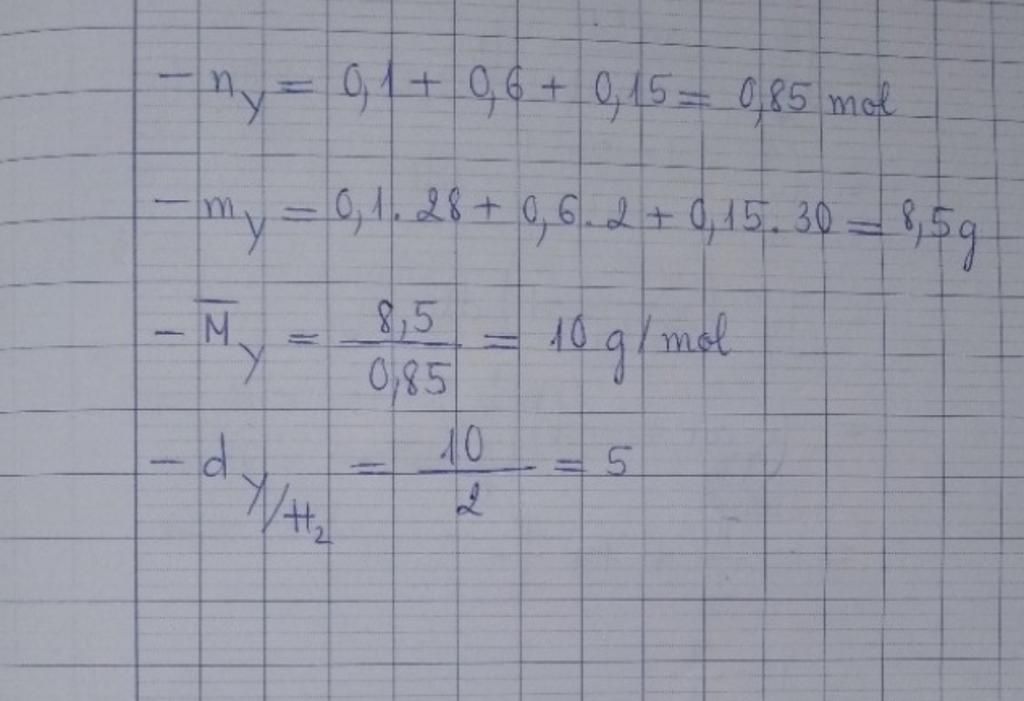 - n_y = 0,1 + 0,6 + 0,15 = 0,85 mol
- m_y = 0,1 . 28 + 0,6 . 2 + 0,15 . 30 = 8,5g
- M̅_y = 8,5/0,85 = 10 g/mol
- d_y/H₂ = 10/2 = 5